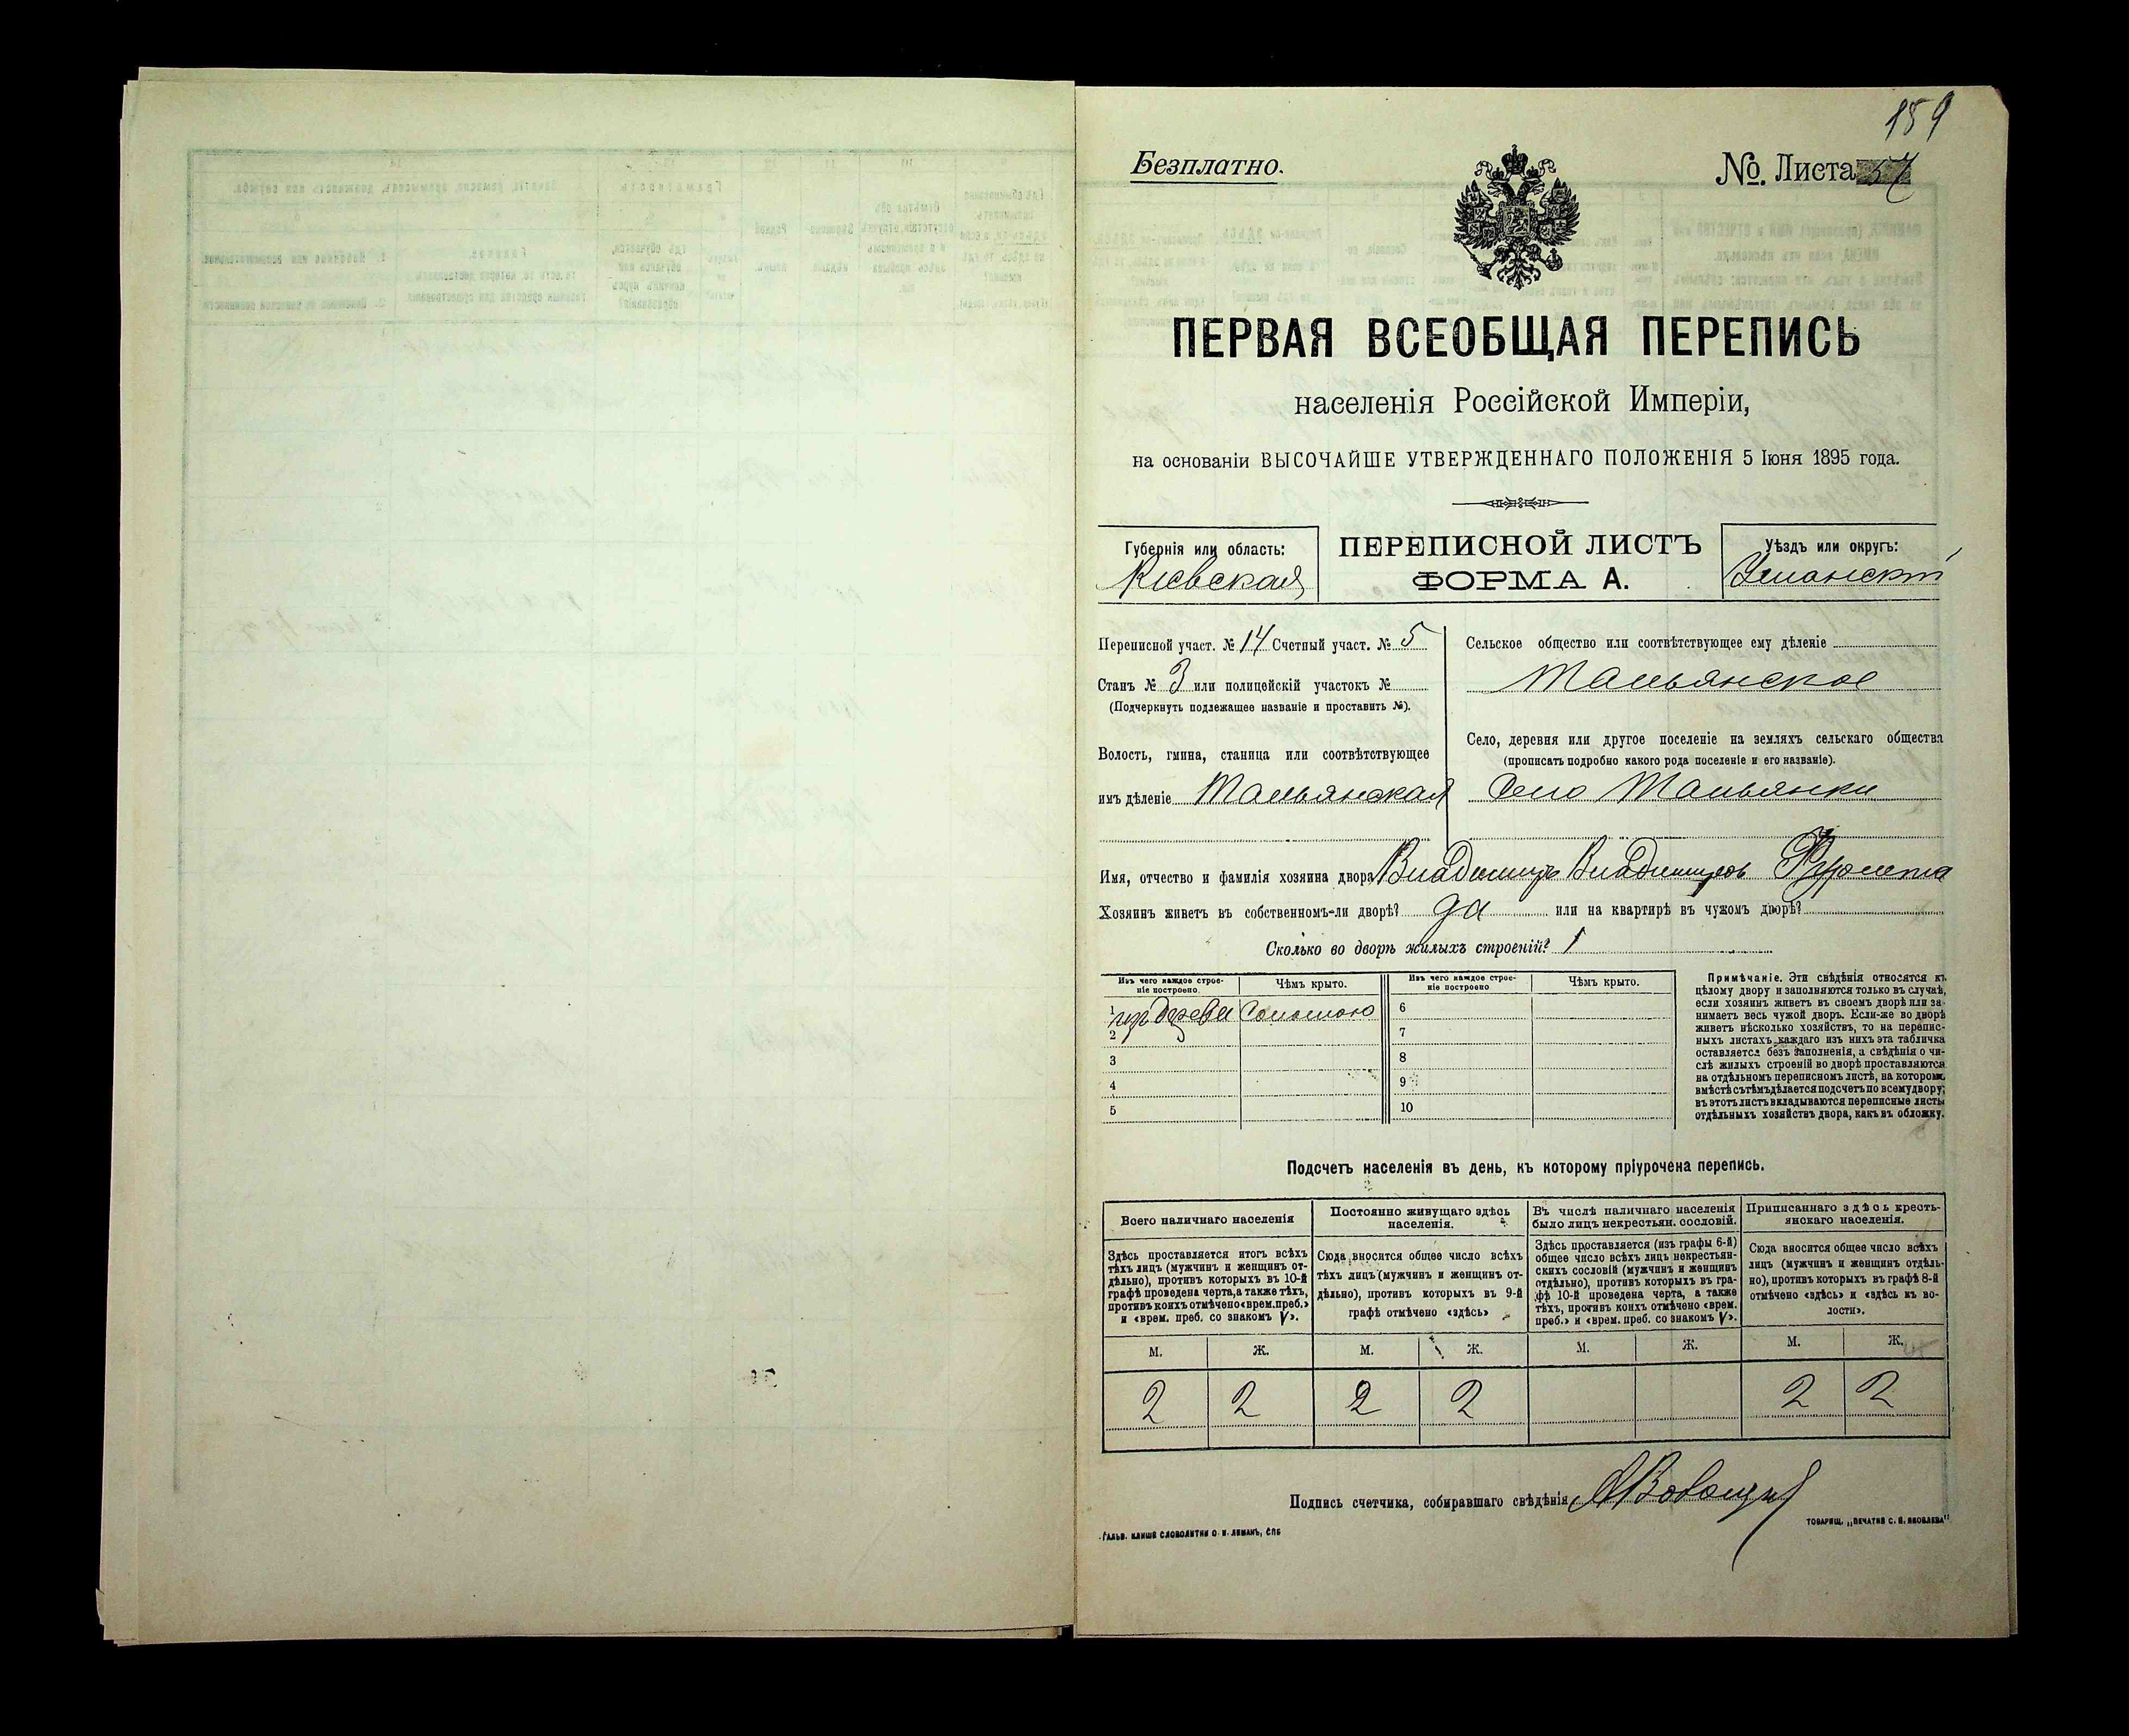 159
Безплатно.
№. Листа 57
ПЕРВАЯ ВСЕОБЩАЯ ПЕРЕПИСЬ
населенія Россійской Имперіи,
на основаніи ВЫСОЧАЙШЕ УТВЕРЖДЕННАГО ПОЛОЖЕНІЯ 5 Іюня 1895 года.
Губернія или область:
Кіевская
ПЕРЕПИСНОЙ ЛИСТЪ
ФОРМА А.
Уѣздъ или округъ:
Уманскій
Переписной участ. № 14 Счетный участ. № 5
Станъ № 3 или полицейскій участокъ №
(Подчеркнуть подлежащее названіе и проставить №).
Волость, гмина, станица или соотвѣтствующее
имъ дѣленіе Тальянская
Сельское общество или соотвѣтствующее ему дѣленіе
Тальянское
Село, деревня или другое поселеніе на земляхъ сельскаго общества
(прописать подробно какого рода поселеніе и его названіе).
Село Тальянки
Имя, отчество и фамилія хозяина двора Владимиръ Владимировъ
Хозяинъ живетъ въ собственномъ-ли дворѣ? да или на квартирѣ въ чужомъ дворѣ?
Сколько во дворѣ жилыхъ строеній? 1
Изъ чего каждое строе-
ніе построено.
Чѣмъ крыто.
Изъ чего каждое строе-
ніе построено
Чѣмъ крыто.
1 изъ дерева Соломою
2
3
4
5
6
7
8
9
10
Примѣчаніе. Эти свѣдѣнія относятся къ
цѣлому двору и заполняются только въ случаѣ,
если хозяинъ живетъ въ своемъ дворѣ или за-
нимаетъ весь чужой дворъ. Если-же во дворѣ
живетъ нѣсколько хозяйствъ, то на перепис-
ныхъ листахъ каждаго изъ нихъ эта табличка
оставляется безъ заполненія, а свѣдѣнія о чи-
слѣ жилыхъ строеній во дворѣ проставляются
на отдѣльномъ переписномъ листѣ, на которомъ
вмѣстѣ съ тѣмъ дѣлается подсчетъ по всему двору;
въ этотъ листъ вкладываются переписные листы
отдѣльныхъ хозяйствъ двора, какъ въ обложку.
Подсчетъ населенія въ день, къ которому пріурочена перепись.
Всего наличнаго населенія
Постоянно живущаго здѣсь
населенія.
Въ числѣ наличнаго населенія
было лицъ некрестьян. сословій.
Приписаннаго здѣсь кресть-
янскаго населенія.
Здѣсь проставляется итогъ всѣхъ
тѣхъ лицъ (мужчинъ и женщинъ от-
дѣльно), противъ которыхъ въ 10-й
графѣ проведена черта, а также тѣхъ,
противъ коихъ отмѣчено «врем. преб.»
и «врем. преб. со знакомъ V».
Сюда вносится общее число всѣхъ
тѣхъ лицъ (мужчинъ и женщинъ от-
дѣльно), противъ которыхъ въ 9-й
графѣ отмѣчено «здѣсь»
Здѣсь проставляется (изъ графы 6-й)
общее число всѣхъ лицъ некрестьян-
скихъ сословій (мужчинъ и женщинъ
отдѣльно), противъ которыхъ въ гра-
фѣ 10-й проведена черта, а также
тѣхъ, противъ коихъ отмѣчено «врем.
преб.» и «врем. преб. со знакомъ V».
Сюда вносится общее число всѣхъ
лицъ (мужчинъ и женщинъ отдѣль-
но), противъ которыхъ въ графѣ 8-й
отмѣчено «здѣсь» и «здѣсь къ во-
лости».
М. Ж. М. Ж. М. Ж. М. Ж.
2 2 2 2 2 2
Подпись счетчика, собиравшаго свѣдѣнія
ГАЛЬВ. КЛИШЕ СЛОВОЛИТНИ О. И. ЛЕМАНЪ, СПБ
ТОВАРИЩ. „ПЕЧАТНЯ С. П. ЯКОВЛЕВА"